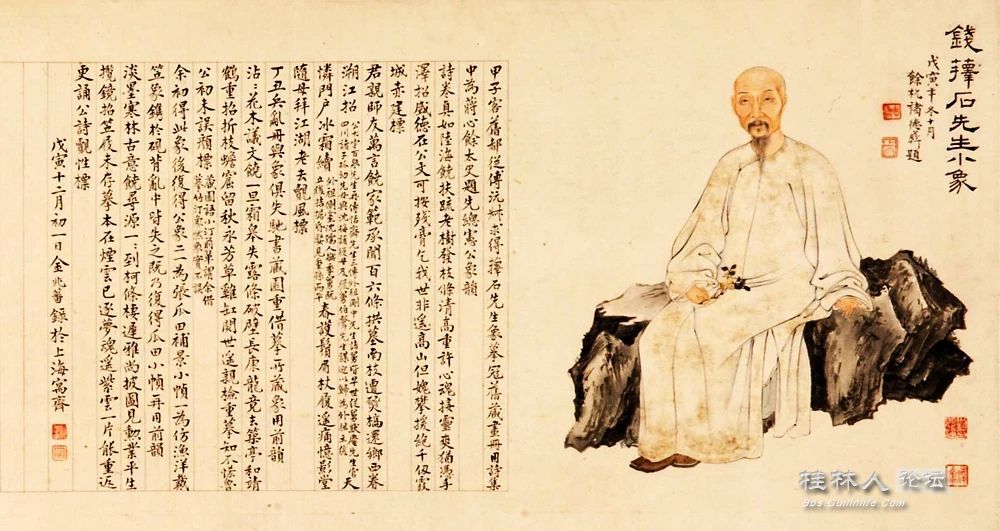 錢蘀石先生小象
戊寅年冬十月
餘杭褚德彝題
甲子客舊都從傅沅叔求得蘀石先生象摹冠舊藏畫冊用詩集
中為蔣心餘太史題先總憲公象韻
詩卷真如陸海饒扶疏老樹發枝條清高重許心魂接靈爽猶馮手
澤招感德在公文可按殘膏乞我世非遙高山但媿攀援絕千仞霞
城赤建標
君親師友萬言饒家範承聞百六條拱墓南枝遭燹搞還鄉西眷
溯江招
天
憐門戶冰霜續
春護鬚眉杖履遙痛憶影堂
隨母拜江湖老去覿風標
丁丑兵亂冊與象俱失馳書藏園重借摹所藏象用前韻
沾沾花木議文饒一旦霜皋失露條破壁長康龍竟去築亭和靖
鶴重招折枝蟾窟留秋永芳草雞缸閱世遙親檢重摹知不慭
公初未誤頑標
余初得此象後復得公象二一為張瓜田補景小幀一為仿漁洋戴
笠象鐫於硯背亂中皆失之既乃復得瓜田小幀再用前韻
淡墨寒林古意饒尋源一一到柯條棲遲雅尚披圖見勳業平生
攬鏡招笠屐未存摹本在煙雲已逐夢魂遙紫雲一片能重返
更誦公詩覿性標
戊寅十二月初一日金兆蕃錄於上海寓齋
桂林人论坛
Bbs.Guilinlife.Com